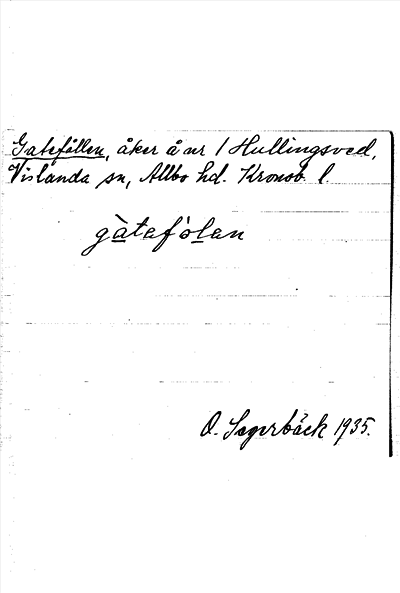 Gatefållen, åker å nr 1 Hullingsved,
Vislanda sn, Allbo hd. Kronob. l.
gàtefòlan
O. Sagerbäck 1935.